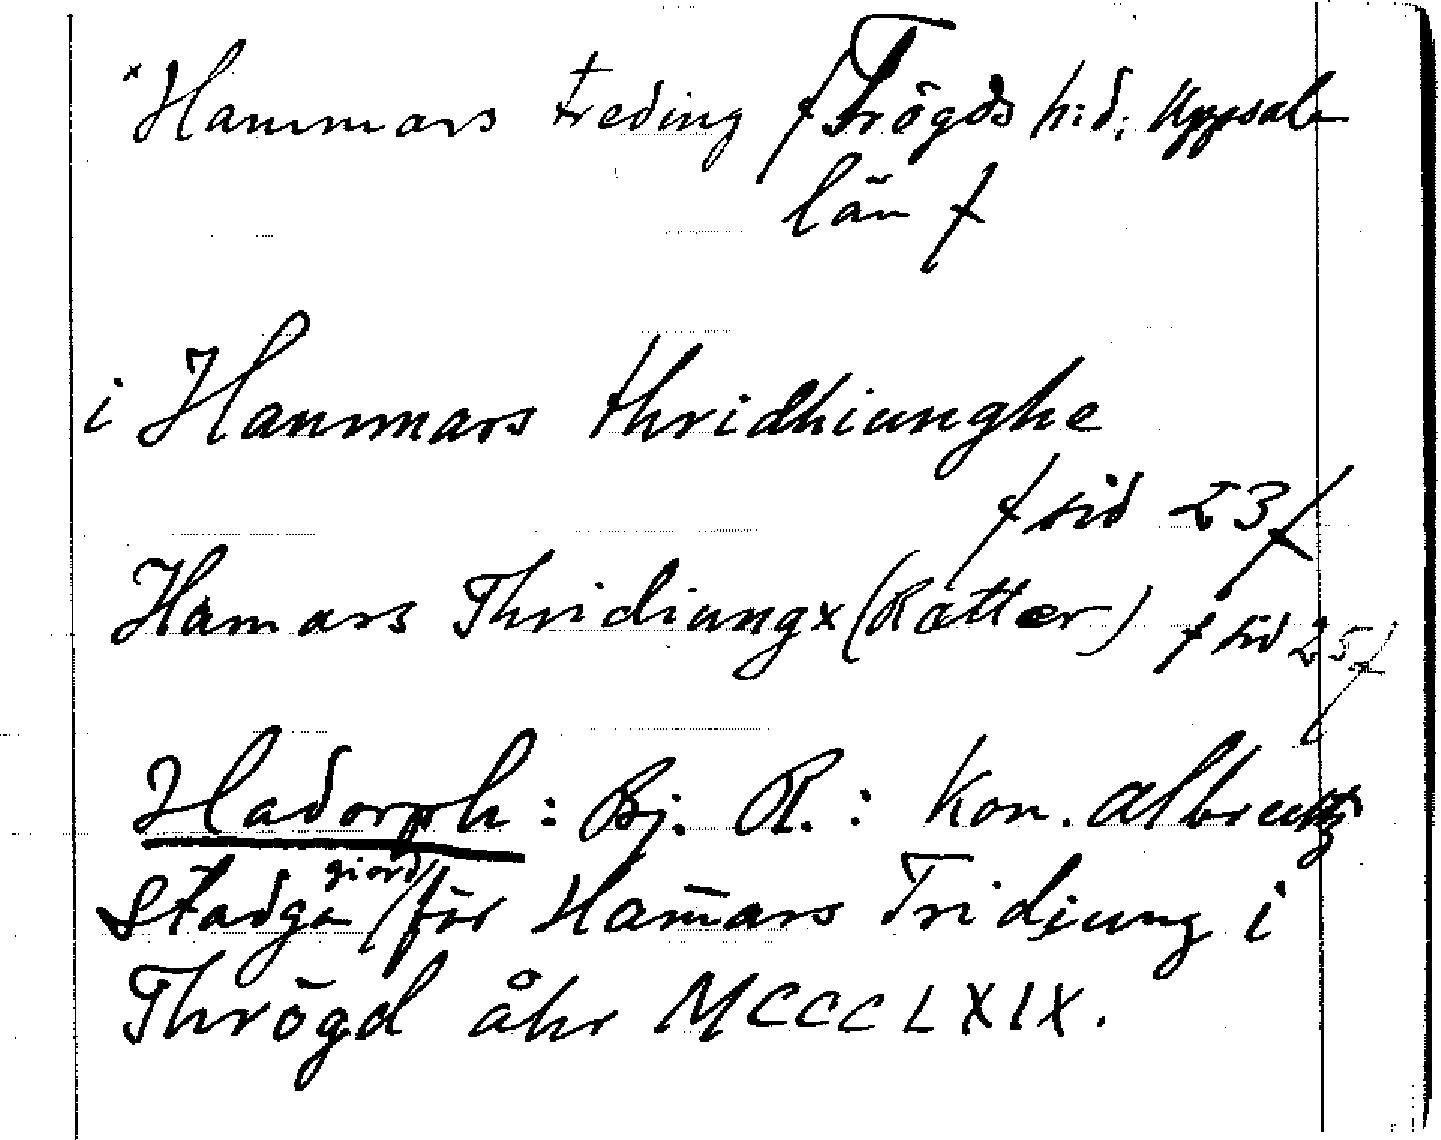 *Hammars treding / Trögds h:d; Uppsala
län /
i Hammars thridhiunghe
/ sid 23 /
Hamars Thridiungx (Rætter) / sid 25 /
Hadorph : Bj. R. : Kon. Albrectz
Stadga giord för Ham̄ars Tridiung i
Thrögd åhr MCCCLXIX.